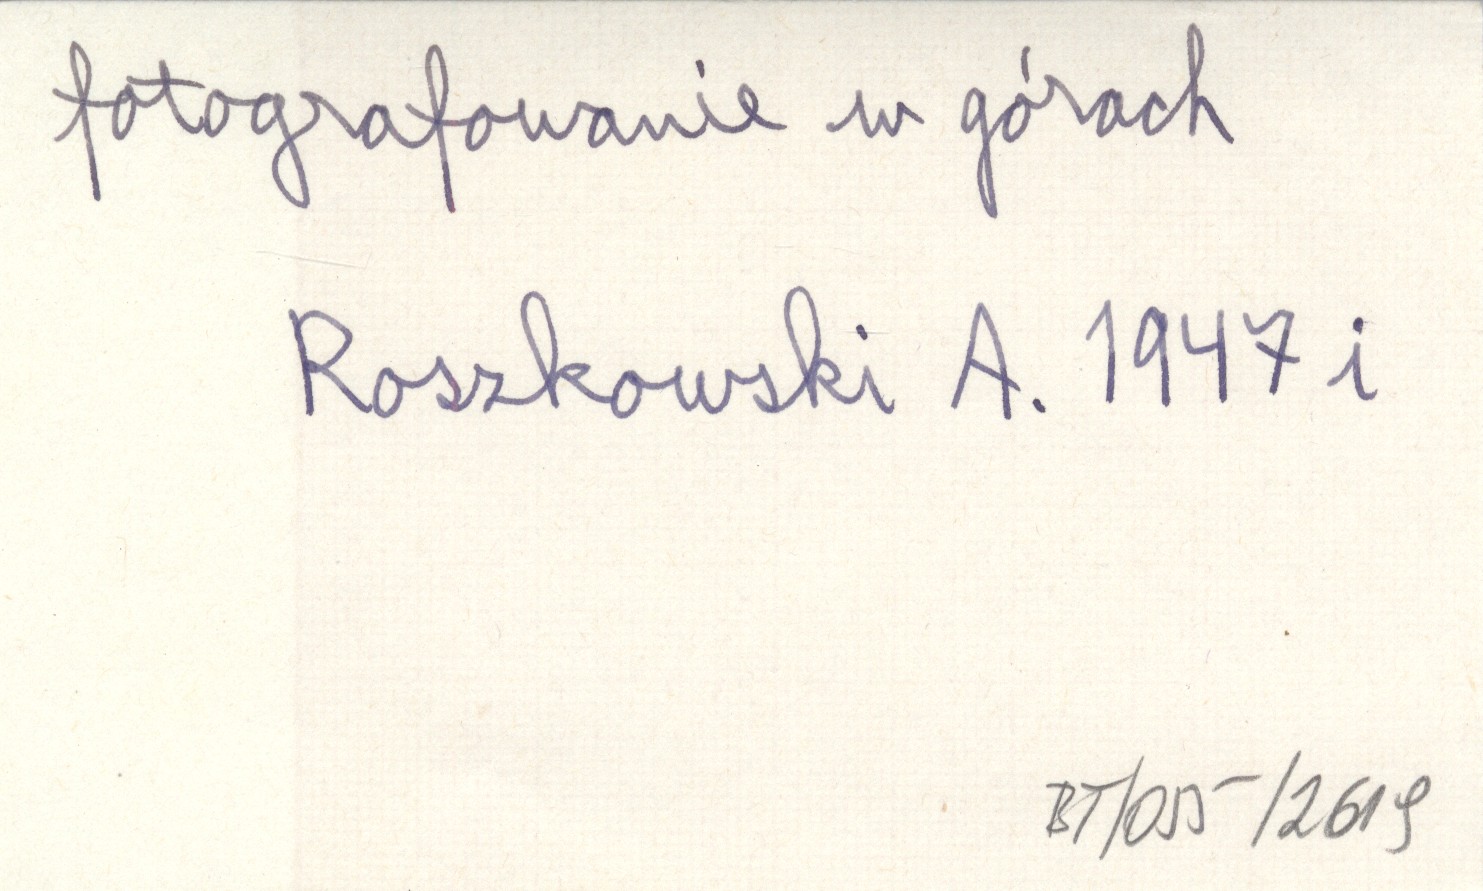 fotografowanie w górach
Roszkowski A. 1947 i
BT/055/2619